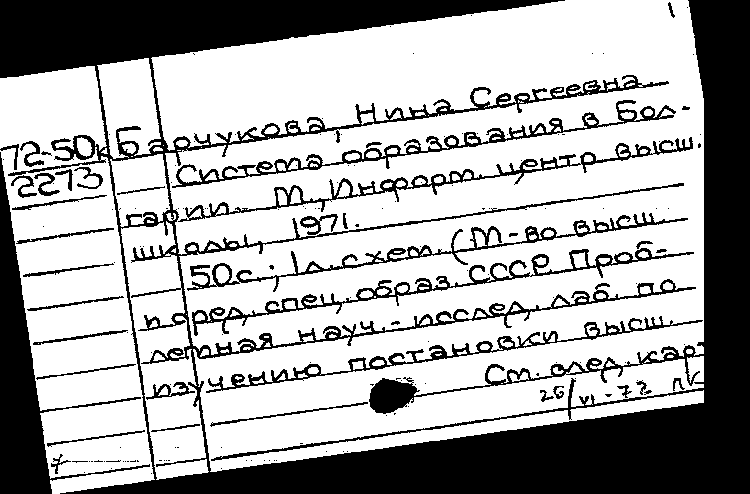 1
72-50к Барчукова, Нина Сергеевна.
2273 Система образования в Бол-
гарии. М., Информ. центр высш.
школы, 1971.
50с.; 1л.схем. (М-во высш.
и сред. спец. образ. СССР. Проб-
лемная науч.-исслед. лаб. по
изучению постановки высш.
См. след. карт
26/VI-72 ПК